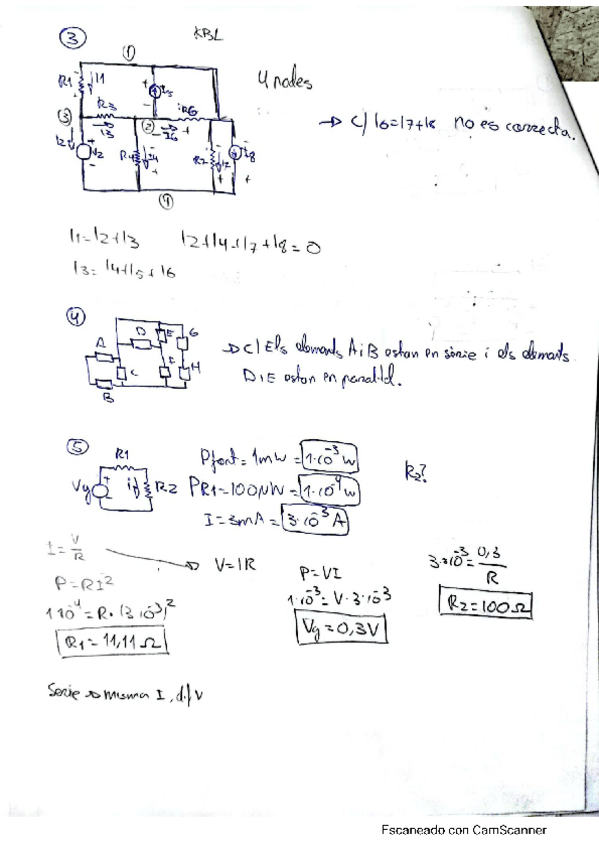 ③ KBL
①
R1 I1
4 nodes
R3 iR6
③ I3 ② I6
I2 V2 R4 I4 R7 I7 I8
→ C/ I6=I7+I8 no es correcta.
④
I1=I2+I3 I2+I4+I7+I8=0
I3=I4+I5+I6
④
A D E G
→ C/ Els elements A i B estan en sèrie i els elements
C F H
D i E estan en paral·lel.
B
⑤
R1
Vg i R2
Pfont = 1mW = 1·10⁻³ W
R2?
PR1 = 100µW = 1·10⁻⁴ W
I = 3mA = 3·10⁻³ A
I = V/R → V=IR
P=RI²
1·10⁻⁴ = R·(3·10⁻³)²
R1 = 11,11 Ω
P=VI
1·10⁻³ = V·3·10⁻³
Vg = 0,3V
3·10⁻³ = 0,3/R
R2 = 100 Ω
Serie → misma I, d/V
Escaneado con CamScanner